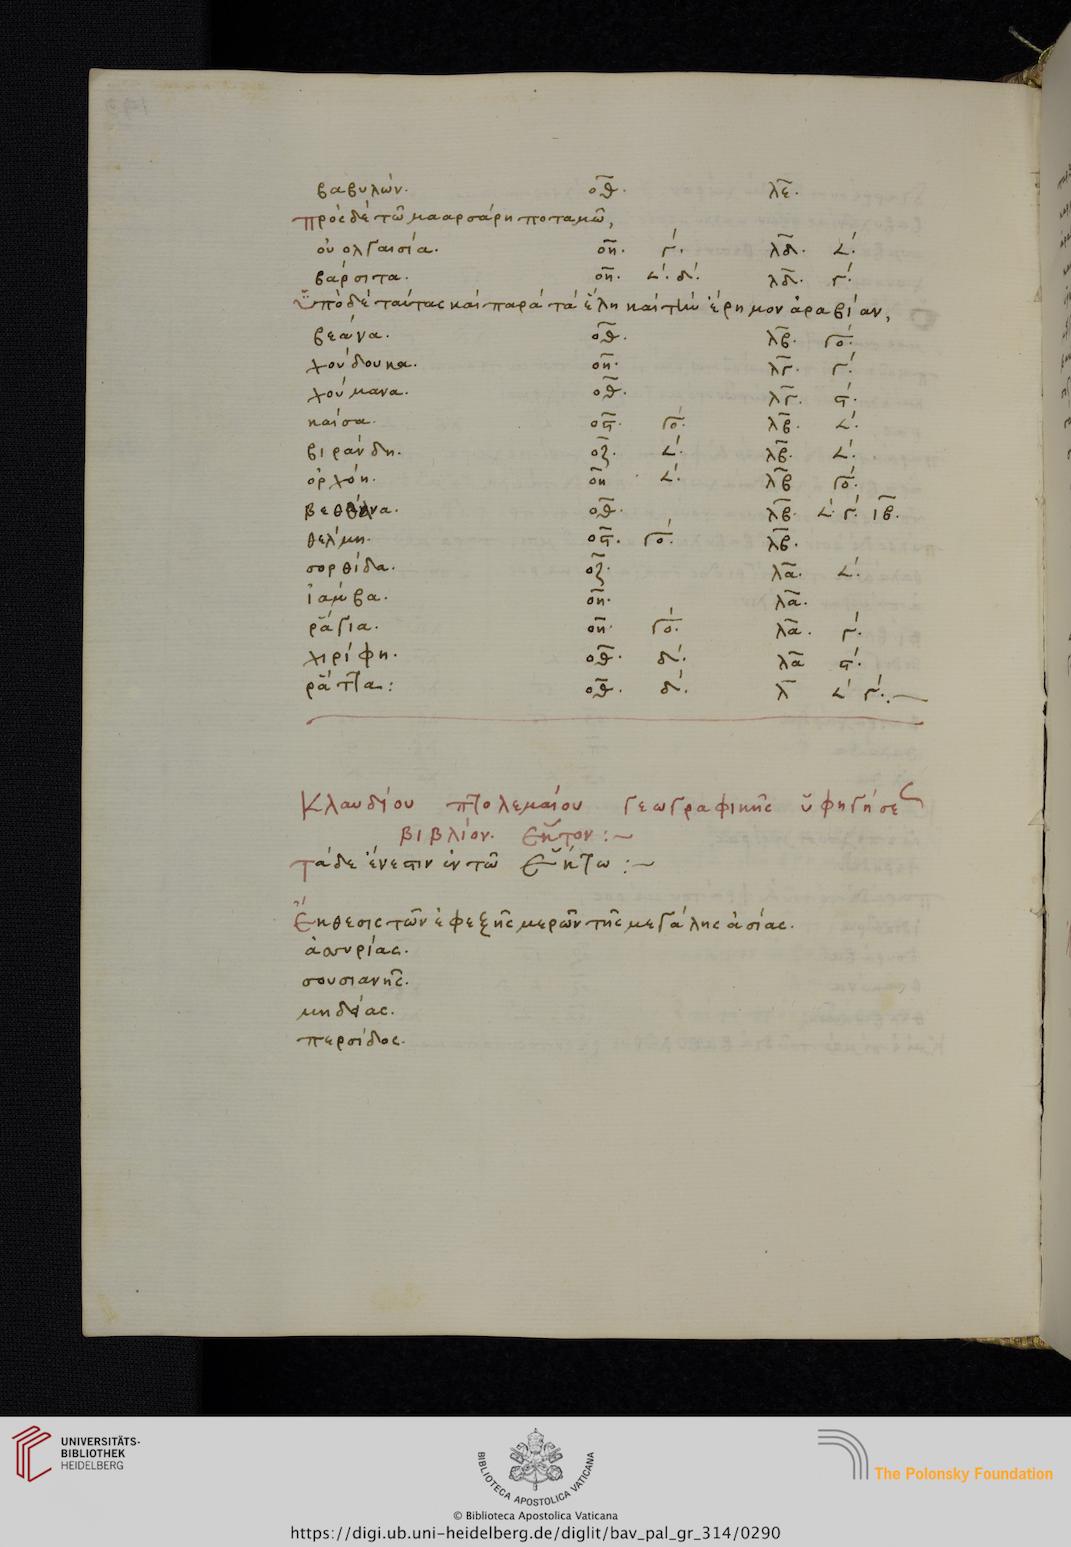 βαβυλών. οθ. λε.
πρὸς δὲ τῶ μααρσάρη ποταμῶ,
οὐολγαισία. οη. γ'. λδ. 𐅵'.
βάρσιτα. οη. 𐅵'. δ'. λδ. γ'.
Ὑπὸ δὲ ταύτας καὶ παρὰ τὰ ἕλη καὶ τὴν ἔρημον ἀραβίαν,
βεάνα. οθ. λβ. γο'.
χούδουκα. οη. λγ. γ'.
χούμανα. οθ. λγ. ϛ'.
καίσα. οϛ. γο'. λβ. 𐅵'.
βιράνδη. οζ. 𐅵'. λβ. 𐅵'.
ὀρχόη. οη 𐅵'. λβ γο'.
οθ. λβ. 𐅵' γ' ιβ.
θελμη. οϛ. γο'. λβ.
σορθίδα. οζ. λα. 𐅵'.
ἰάμβα. οη. λα.
ῥάγια. οη. γο'. λα. γ'.
χιρίφη. οθ. δ'. λα ϛ'.
ῥάττα: οθ. δ'. λ 𐅵' γ'.
Κλαυδίου πτολεμαίου γεωγραφικῆς ὑφηγήσε
βιβλίον. ἕκτον :~
τάδε ἔνεστιν ἐν τῶ ἕκτω :~
Ἔκθεσις τῶν ἐφεξῆς μερῶν τῆς μεγάλης ἀσίας.
ἀσσυρίας.
σουσιανῆς.
μηδείας.
περσίδος.
UNIVERSITÄTS-
BIBLIOTHEK
HEIDELBERG
BIBLIOTECA APOSTOLICA VATICANA
The Polonsky Foundation
© Biblioteca Apostolica Vaticana
https://digi.ub.uni-heidelberg.de/diglit/bav_pal_gr_314/0290